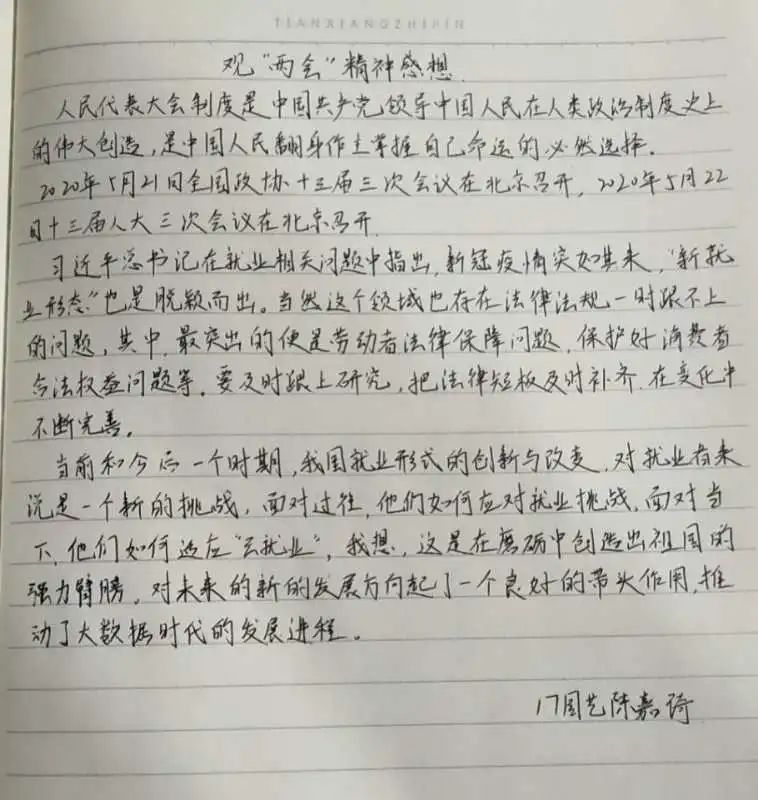 TIANXIANGZHIPIN
观“两会”精神感想
人民代表大会制度是中国共产党领导中国人民在人类政治制度史上
的伟大创造，是中国人民翻身作主掌握自己命运的必然选择.
2020年5月21日全国政协十三届三次会议在北京召开, 2020年5月22
日十三届人大三次会议在北京召开.
习近平总书记在就业相关问题中指出,新冠疫情突如其来,“新就
业形态”也是脱颖而出。当然这个领域也存在法律法规一时跟不上
的问题，其中,最突出的便是劳动者法律保障问题,保护好消费者
合法权益问题等.要及时跟上研究,把法律短板及时补齐.在变化中
不断完善。
当前和今后一个时期,我国就业形式的创新与改变,对就业者来
说是一个新的挑战,面对过往,他们如何应对就业挑战,面对当
下,他们如何适应“云就业”,我想,这是在磨砺中创造出祖国的
强力臂膀,对未来的新的发展方向起了一个良好的带头作用,推
动了大数据时代的发展进程。
17园艺陈嘉琦